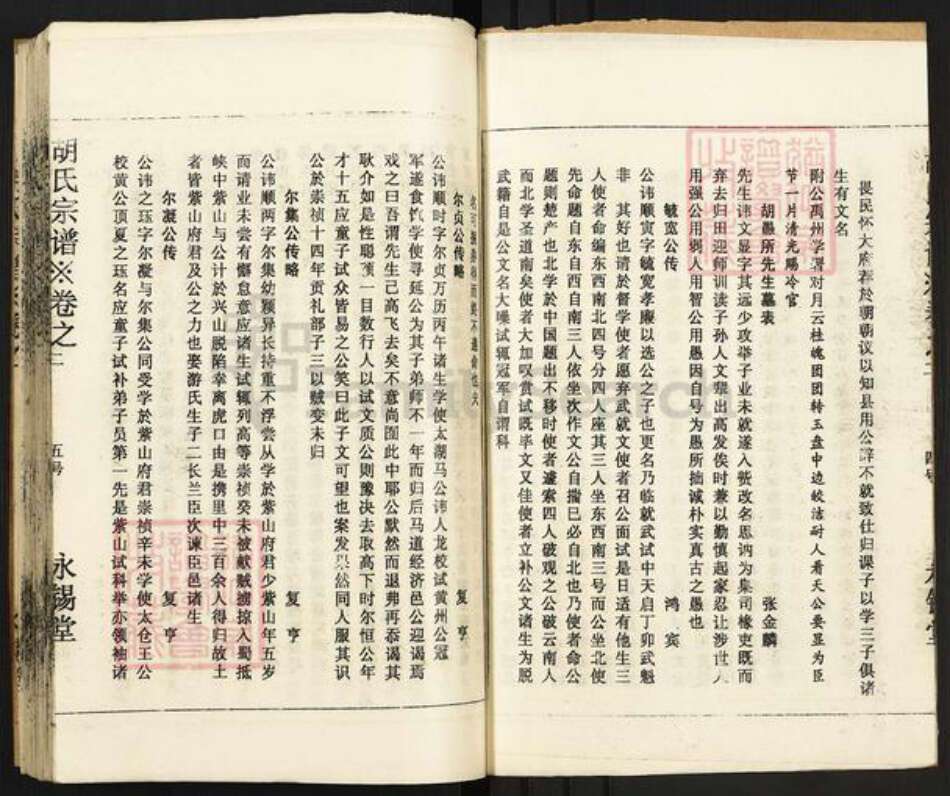 畏民怀大府荐於朝朝议以知县用公辞不就致仕归课子以学三子俱诸
生有文名
附公禹州学署对月云桂魄团团转玉盘中边皎洁耐人看天公要显为臣
节一片清光赐冷官
胡愚所先生墓表 张金麟
先生讳文显字其远少攻举子业未就遂入赀改名恩讷为集司椽吏既而
弃去归田迎师训读子孙人文辈出高发俟时兼以勤慎起家忍让涉世人
用强公用出乡人用智公用愚因自号为愚所拙诚朴实真古之愚也
毓宽公传 鸿宾
公讳顺寅字毓宽孝廉以选公之子也更名乃临就武试中天启丁卯武魁
非 其好也请於督学使者愿弃武就文使者召公面试是日适有他生三
人使者命编东西南北四号分四人座其三人坐东西南三号而公坐北使
先命题自东自西自南三人依坐次作文公自揣已必自北也乃使者命公
题则楚产也北学於中国题出不移时使者遽索四人破观之公破云南人
而北学圣道南矣使者大加叹赏试既毕文又佳使者立补公文诸生为脱
武籍自是公文名大噪试辄冠军自谓科
尔贞公传略 复亨
公讳顺时字尔贞万历丙午诸生学使太湖马公讳人龙校试黄州公冠
军遂食饩学使寻延公为其子弟师不一年而归后马道经济邑公迎谒焉
戏之曰吾谓先生己高飞去矣不意尚囿此中耶公默然而退弗再忝谒其
耿介如是性聪颖一目数行人以试文质公则豫决去取高下时尔恒公年
才十五应童子试众皆易之公笑曰此子文可望也案发果然同人服其识
公於崇祯十四年贡礼部子三以贼变未归
尔集公传略 复亨
公讳顺两字尔集幼颖异长持重不浮尝从学於紫山府君少紫山年五岁
而请业未尝有懈怠意应诸生试辄列高等崇祯癸未被献贼掳掠入蜀抵
峡中紫山府与公计於兴山脱陷幸离虎口由是携里中三百余人得归故土
者皆紫山府君及公之力也娶游氏生子二长兰臣次谏臣邑诸生
尔凝公传 复亨
公讳之珏字尔凝与尔集公同受学於紫山府君崇祯辛未学使太仓王公
校黄公顶夏之珏名应童子试补弟子员第一先是紫山试科举亦领袖诸
胡氏宗谱※卷之二 五号 永锡堂